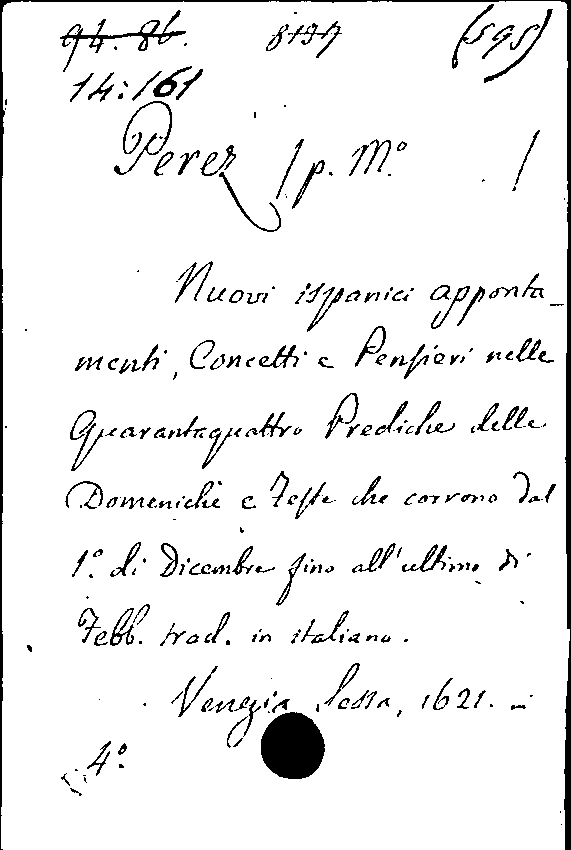 94. 86. 8137 (595)
14:161
Perez / p. M.º /
Nuovi ispanici apponta-
menti, Concetti e Pensieri nelle
Quarantaquattro Prediche delle
Domeniche e Feste che corrono dal
1.º di Dicembre fino all'ultimo di
Febb. trad. in italiano.
Venezia, Sessa, 1621. in
4º